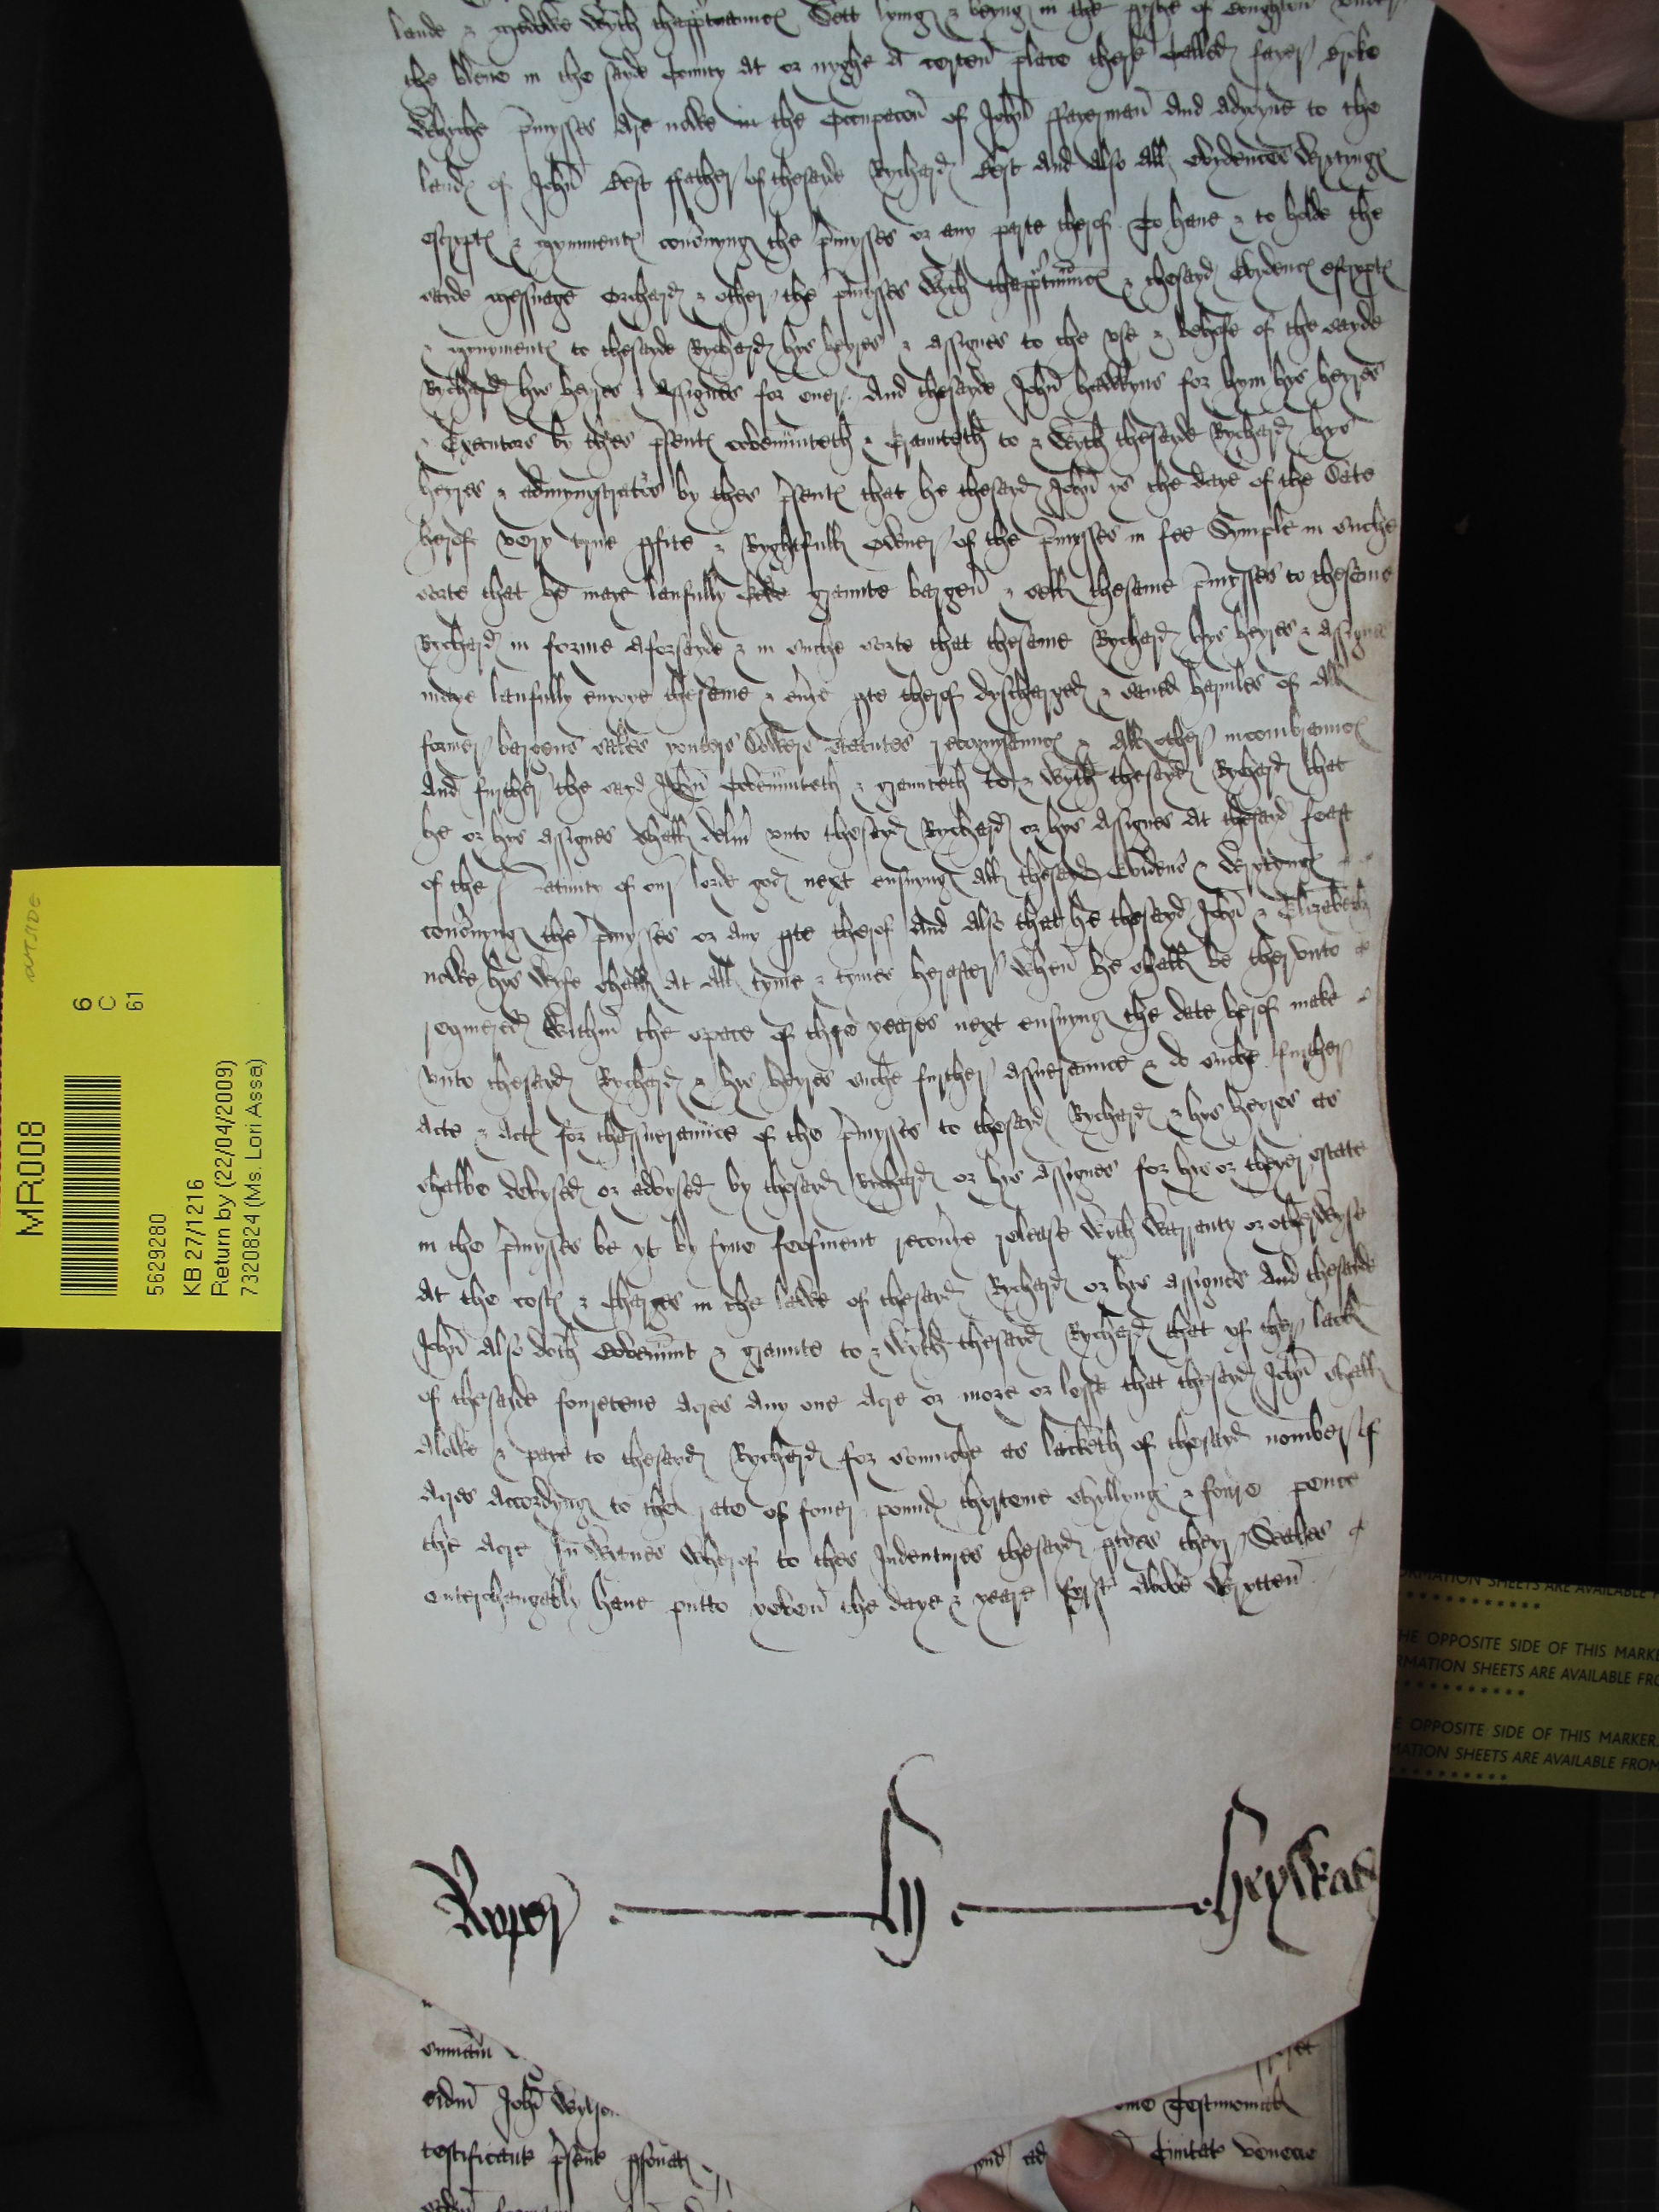 lande & medowe wyth thapp'tennces Sett lying & beyng in the p'ishe of Boughton under
the blene in the sayde County at or nyghe a certen place there called fayer broke
whyche p'mysses are nowe in the Occupacon of John ffayerman And adioyne to the
land of John Best ffather of thesayde Rychard Best And also all evydences wrytinges
escryptes & mynumentes conc'nyng the p'mysses or any parte therof To have & to holde the
sayde messuage Orchard & other the p'mysses wyth thapp'tennces & thesayd Evydences escryptes
& mynymentes to thesayde Rychard hys heyres & assignes to the use & behofe of the sayde
Rychard hys heyres & Assignes for ever And thesayde John hawkyns for hym hys heyres
& Executors by theis p'sentes covenunteth & Graunteth to & wyth thesayde Rychard hys
heyres & admynystrators by thes p'sentes that he thesayd John ys the daye of the Date
herof very true p'fite & Ryghtfull Owner of the p'mysses in fee Symple in suche
sorte that he maye laufully geve graunte bargen & sell thesame p'mysses to thesame
Rychard in forme aforsayde & in suche sorte that thesame Rychard hys heyres & assignes
maye laufully enioye thesame & eu'ye p'te therof dyscharged & saved harmles of all
former bargens sales ioyntors Dowers statutes recognysaunces & All other incombraunces
And further the sayd John Covenunteth & graunteth to & wyth thesayd Rychard that
he or hys assignes shall delyu' unto thesayd Rychard or hys Assignes At thesayd feast
of the Natiuity of our lorde god next ensuyng all thesayd Evidens & wrytynges
conc'nyng the p'mysses or any p'te therof And also that he thesayd John & Elizabeth
nowe hys wyfe shall at all tyme & tymes herafter when he shall be therunto
requered within the space of thre yeares next ensuyng the date herof make
unto thesayd Rychard & hys heyres suche further assueraunce & do suche further
acte & actes for thassueraunce of the p'mysses to thesayd Rychard & hys heyres as
shalbe devysed or advysed by thesayd Rychard or hys assignes for hys or theyr estate
in the p'mysses be yt by fyne feofment recou'ye release wyth warranty or otherwyse
At the costes & charges in the lawe of thesayd Rychard or hys assignes And thesayde
John also doth Covenunt & graunte to & wyth thesayd Rychard that yf ther lack
of thesayde fouretene acres any one acre or more or lesse that thesayd John shall
alowe & paye to thesayd Rychard for somuche as lacketh of thesayd nomber of
acres accordyng to the rate of fouer poundes thyrtene shyllynges & foure pence
the acre In wytnes wherof to thes Indentures thesayd p'tyes theyr Seales
enterchangably have putto yeven the daye & yeare fyrst above wrytten
Roper ly
eidm John Wylson
Testimoniale
testificant p'sent p'sonal
Ciuitat
MR008
6
C
61
5629280
KB 27/1216
Return by (22/04/2009)
7320824 (Ms. Lori Assa)
ORMATION SHEETS ARE AVAILABLE
HE OPPOSITE SIDE OF THIS MARKE
RMATION SHEETS ARE AVAILABLE FRO
E OPPOSITE SIDE OF THIS MARKER.
MATION SHEETS ARE AVAILABLE FROM